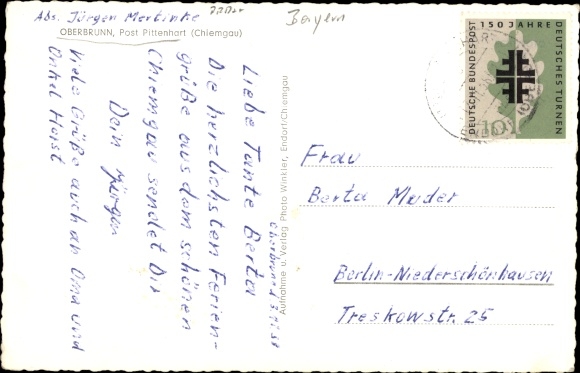 Abs. Jürgen Merbinke
OBERBRUNN, Post Pittenhart (Chiemgau)
Bayern
Oberbrunn d.
Liebe Tante Berta
Die herzlichsten Ferien-
grüße aus dem schönen
Chiemgau sendet Dir
Dein Jürgen
Viele Grüße auch an Oma und
Onkel Horst
Aufnahme u. Verlag Photo Winkler, Endorf/Chiemgau
DEUTSCHE BUNDESPOST
150 JAHRE
DEUTSCHES TURNEN
10
Frau
Berta Mader
Berlin-Niederschönhausen
Treskowstr. 25